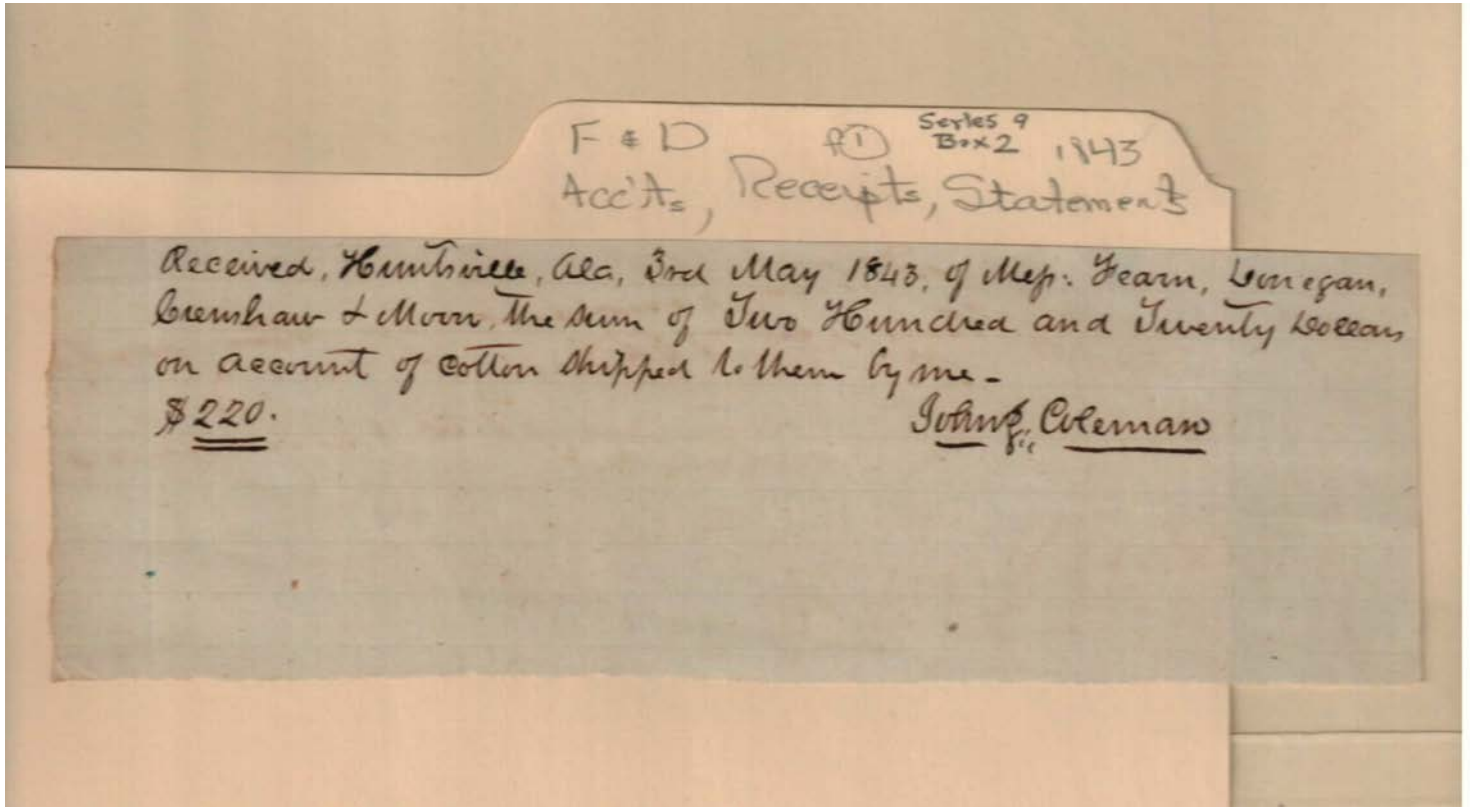 F & D f① Series 9
Box 2 1843
Acc'ts, Receipts, Statements
Received, Huntsville, Ala, 3rd May 1843, of Mess: Fearn, Donegan,
Crenshaw & Moon, the sum of Two Hundred and Twenty Dollars
on account of cotton shipped to them by me -
$220.
John Coleman